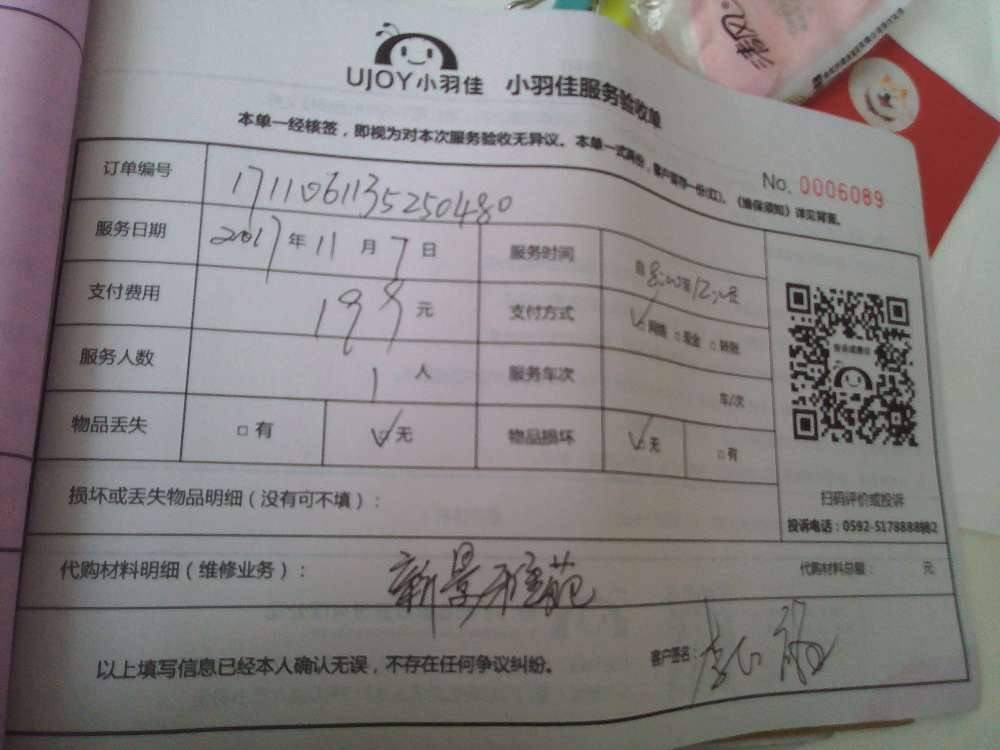 清风
UJOY小羽佳 小羽佳服务验收单
本单一经核签，即视为对本次服务验收无异议。本单一式两份，客户留存一份(红)。《维保须知》详见背面。
No. 0006089
订单编号 1711061135250480
服务日期 2017年11月7日 服务时间
支付费用 199元 支付方式 网络 现金 转账
服务人数 1人 服务车次 车/次
物品丢失 有 无 物品损坏 无 有
损坏或丢失物品明细（没有可不填）：
扫码评价或投诉
投诉电话：0592-5178888
代购材料明细（维修业务）： 新景雅苑 代购材料总额： 元
以上填写信息已经本人确认无误，不存在任何争议纠纷。 客户签名：